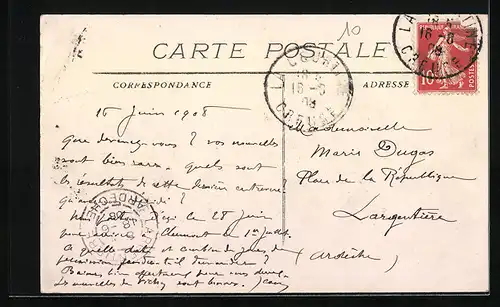 10
CARTE POSTALE
CORRESPONDANCE
ADRESSE
LA COURTINE
16-6
08
CREUSE
LA COURTINE
16-6
08
CREUSE
POSTES
10
16 Juin 1908
Que devenez-vous ? vos nouvelles
sont bien rares. Quels sont
les résultats de cette dernière entrevue ?
28 Juin
pour Clermont le 1er Juillet.
A quelle date et combien de jours de
permission faudra-t-il demander ?
Les nouvelles de Vichy sont bonnes. Jean
ARDECHE
Mademoiselle
Marie Dugas
Place de la République
Largentière
(Ardèche)